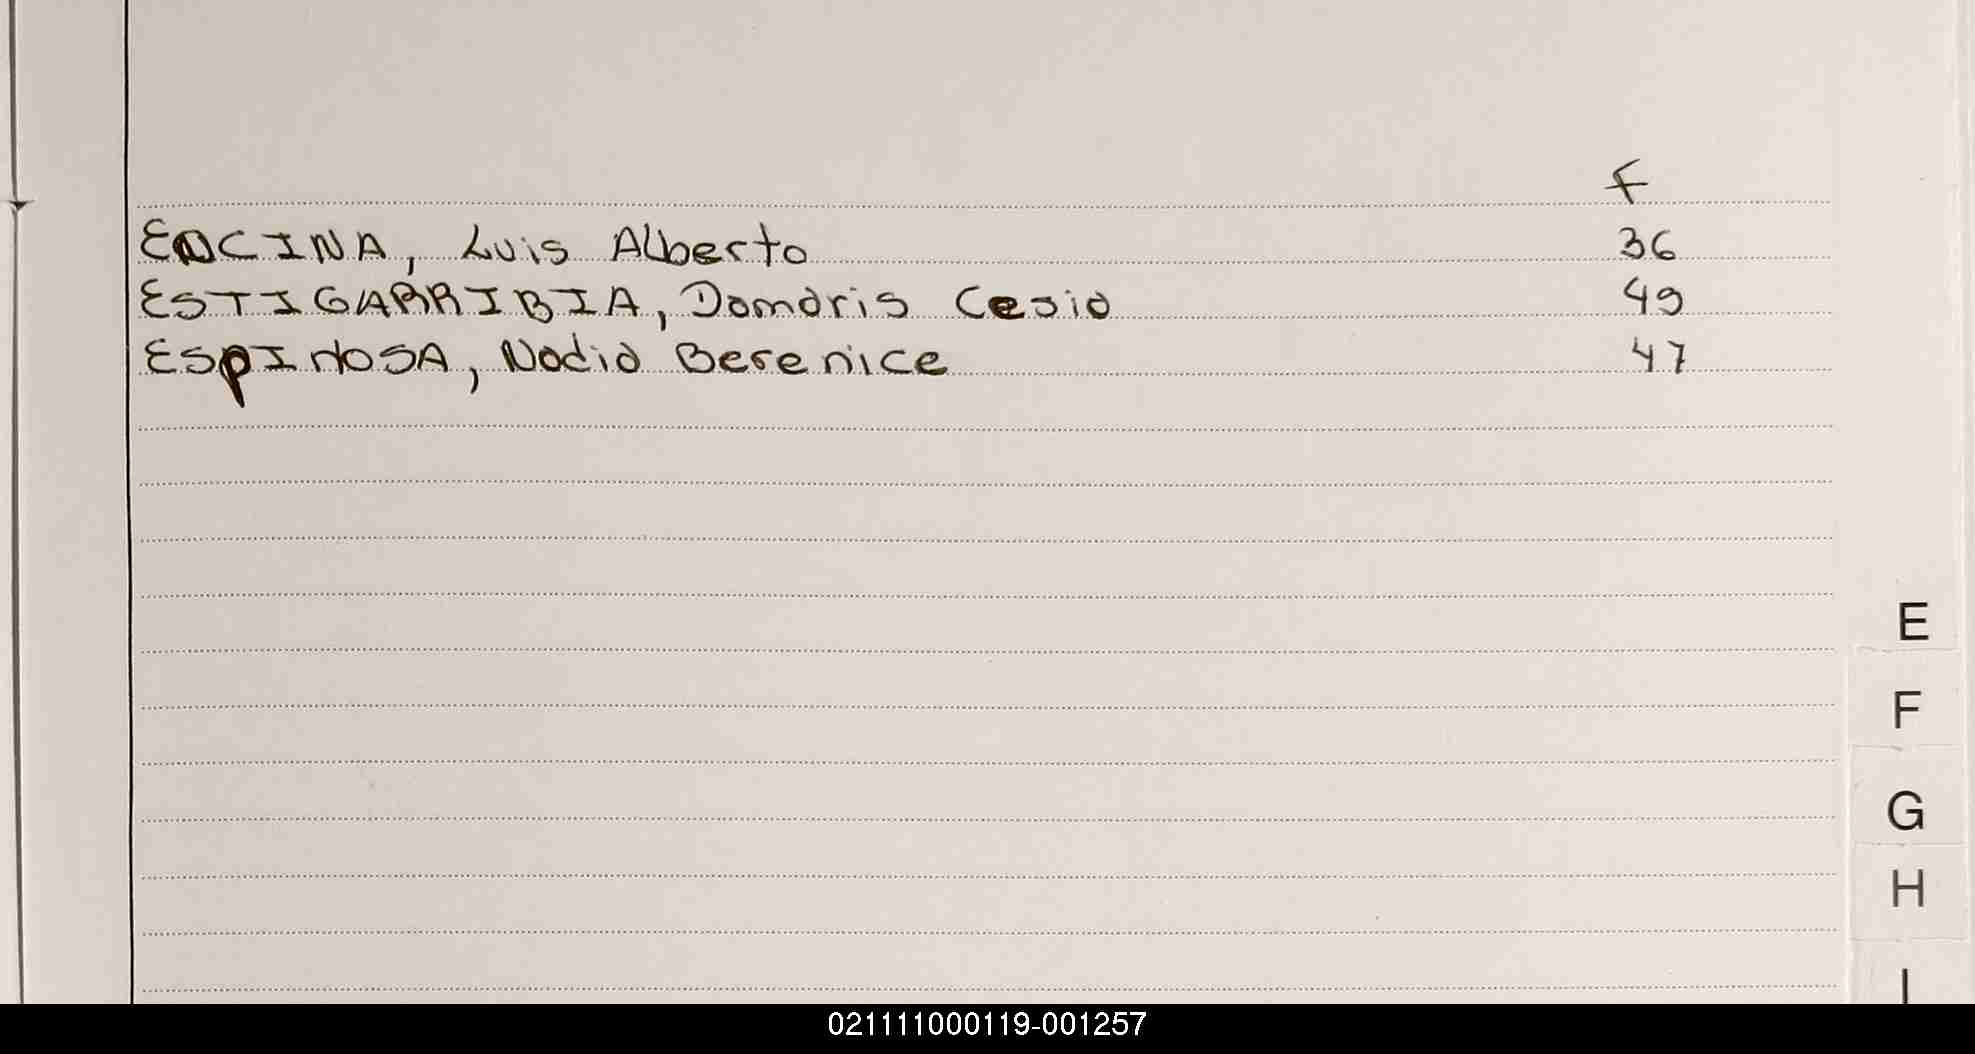 F
ENCINA, Luis Alberto 36
ESTIGARRIBIA, Damaris Cesia 49
ESPINOSA, Nadia Berenice 47
E
F
G
H
I
021111000119-001257